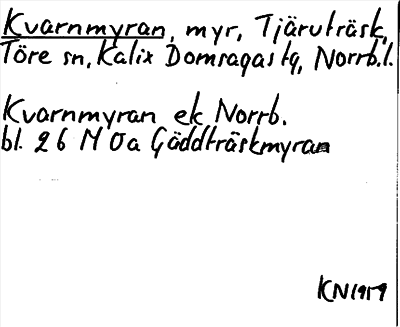 Kvarnmyran, myr, Tjäruträsk,
Töre sn, Kalix Domsagas tg, Norrb.l.
Kvarnmyran ek Norrb.
bl. 26 N Oa Gäddträskmyran
KN 1959